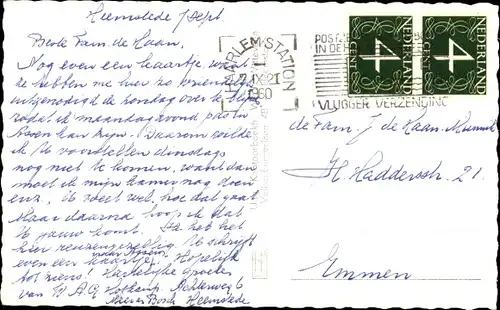 Heemstede 7 Sept.
Beste Fam. de Haan.
Nog even een kaartje, want
ze hebben me hier zo vriendelijk
uitgenodigd de zondag over te blijven
zodat ik maandagavond pas in
Assen kan zijn. Daarom wilde
ik U voorstellen dinsdags
nog niet te komen, want dan
moet ik mijn kamer nog doen
enz. U weet wel, hoe dat gaat.
Maar daarna hoop ik dat
U gauw komt. Ik heb het
hier reuzengezellig. U schrijft
even een kaartje? Hopelijk
naar Assen
tot ziens! Hartelijke groeten
van Achterweg 6
Heemstede
HAARLEM-STATION
7.IX.21
1960
POSTZEGEL
IN DE
VLUGGER VERZENDING
4
CENT
NEDERLAND
4
CENT
NEDERLAND
de Fam. J. de Haan
H. Haddersstr. 21.
Emmen